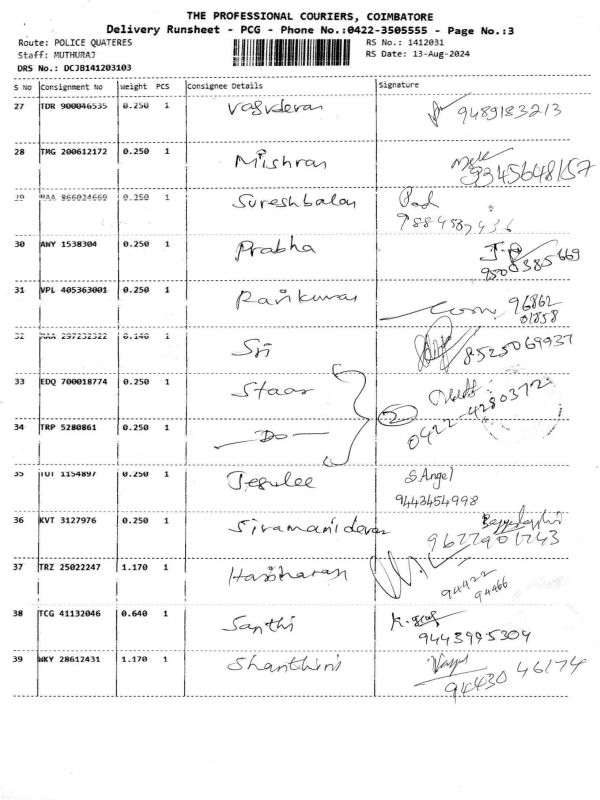 THE PROFESSIONAL COURIERS, COIMBATORE
Delivery Runsheet - PCG - Phone No.:0422-3505555 - Page No.:3
Route: POLICE QUATERES RS No.: 1412031
Staff: MUTHURAJ RS Date: 13-Aug-2024
DRS No.: DCJB141203103
S No Consignment No Weight PCS Consignee Details Signature
27 TDR 900046535 0.250 1 Vasudevan 9489183213
28 TMG 200612172 0.250 1 Mishran 9345648157
29 MAA 866024669 0.250 1 Sureshbalan
9884587436
30 AWY 1538304 0.250 1 Prabha
9500385669
31 VPL 405363001 0.250 1 Ravikumar 96862
01858
32 MAA 297232322 0.140 1 Sri 8525069937
33 EDQ 700018774 0.250 1 Staar
34 TRP 5280861 0.250 1 — Do — 2 0422-4280372
35 TUT 1154897 0.250 1 Jesulee S.Angel
9443454998
36 KVT 3127976 0.250 1 Sivamanidevan
9677901743
37 TRZ 25022247 1.170 1 Hariharan 94422
94466
38 TCG 41132046 0.640 1 Santhi
9443995304
39 WKY 28612431 1.170 1 Shanthini
94430 46174